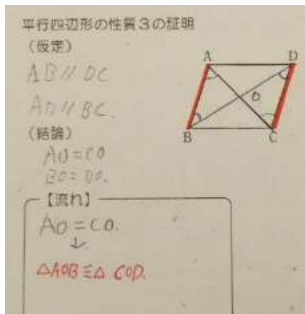 平行四辺形の性質3の証明
(仮定)
AB//DC
AD//BC.
(結論)
AO=CO
BO=DO.
A
D
O
B
C
【流れ】
AO=CO.
↓
△AOB≡△COD.